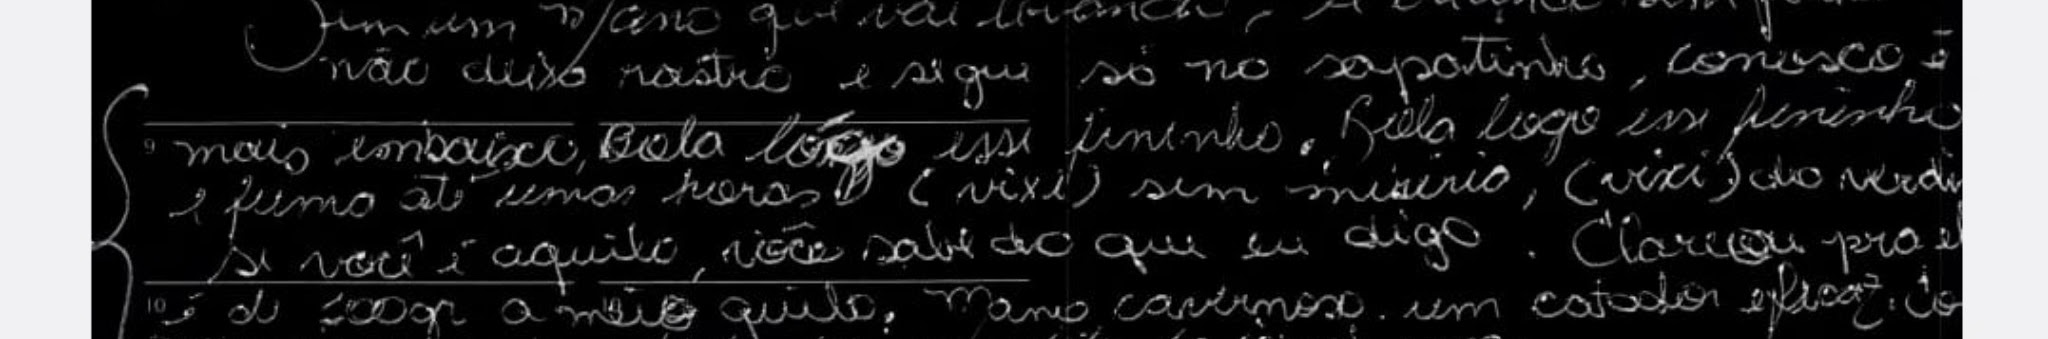 Tem um Mano que vai
não deixa rastro e segue só no sapatinho, conosco é
9 mais embaixo, Bola logo esse fininho. Bola logo esse fininho
e fuma até umas horas (vixi) sem miséria, (vixi) do verdi
se você é aquilo, você sabe do que eu digo. Clareou pra el
10 é di 100gr a meio quilo. Mano cavernoso. um catador eficaz. Co